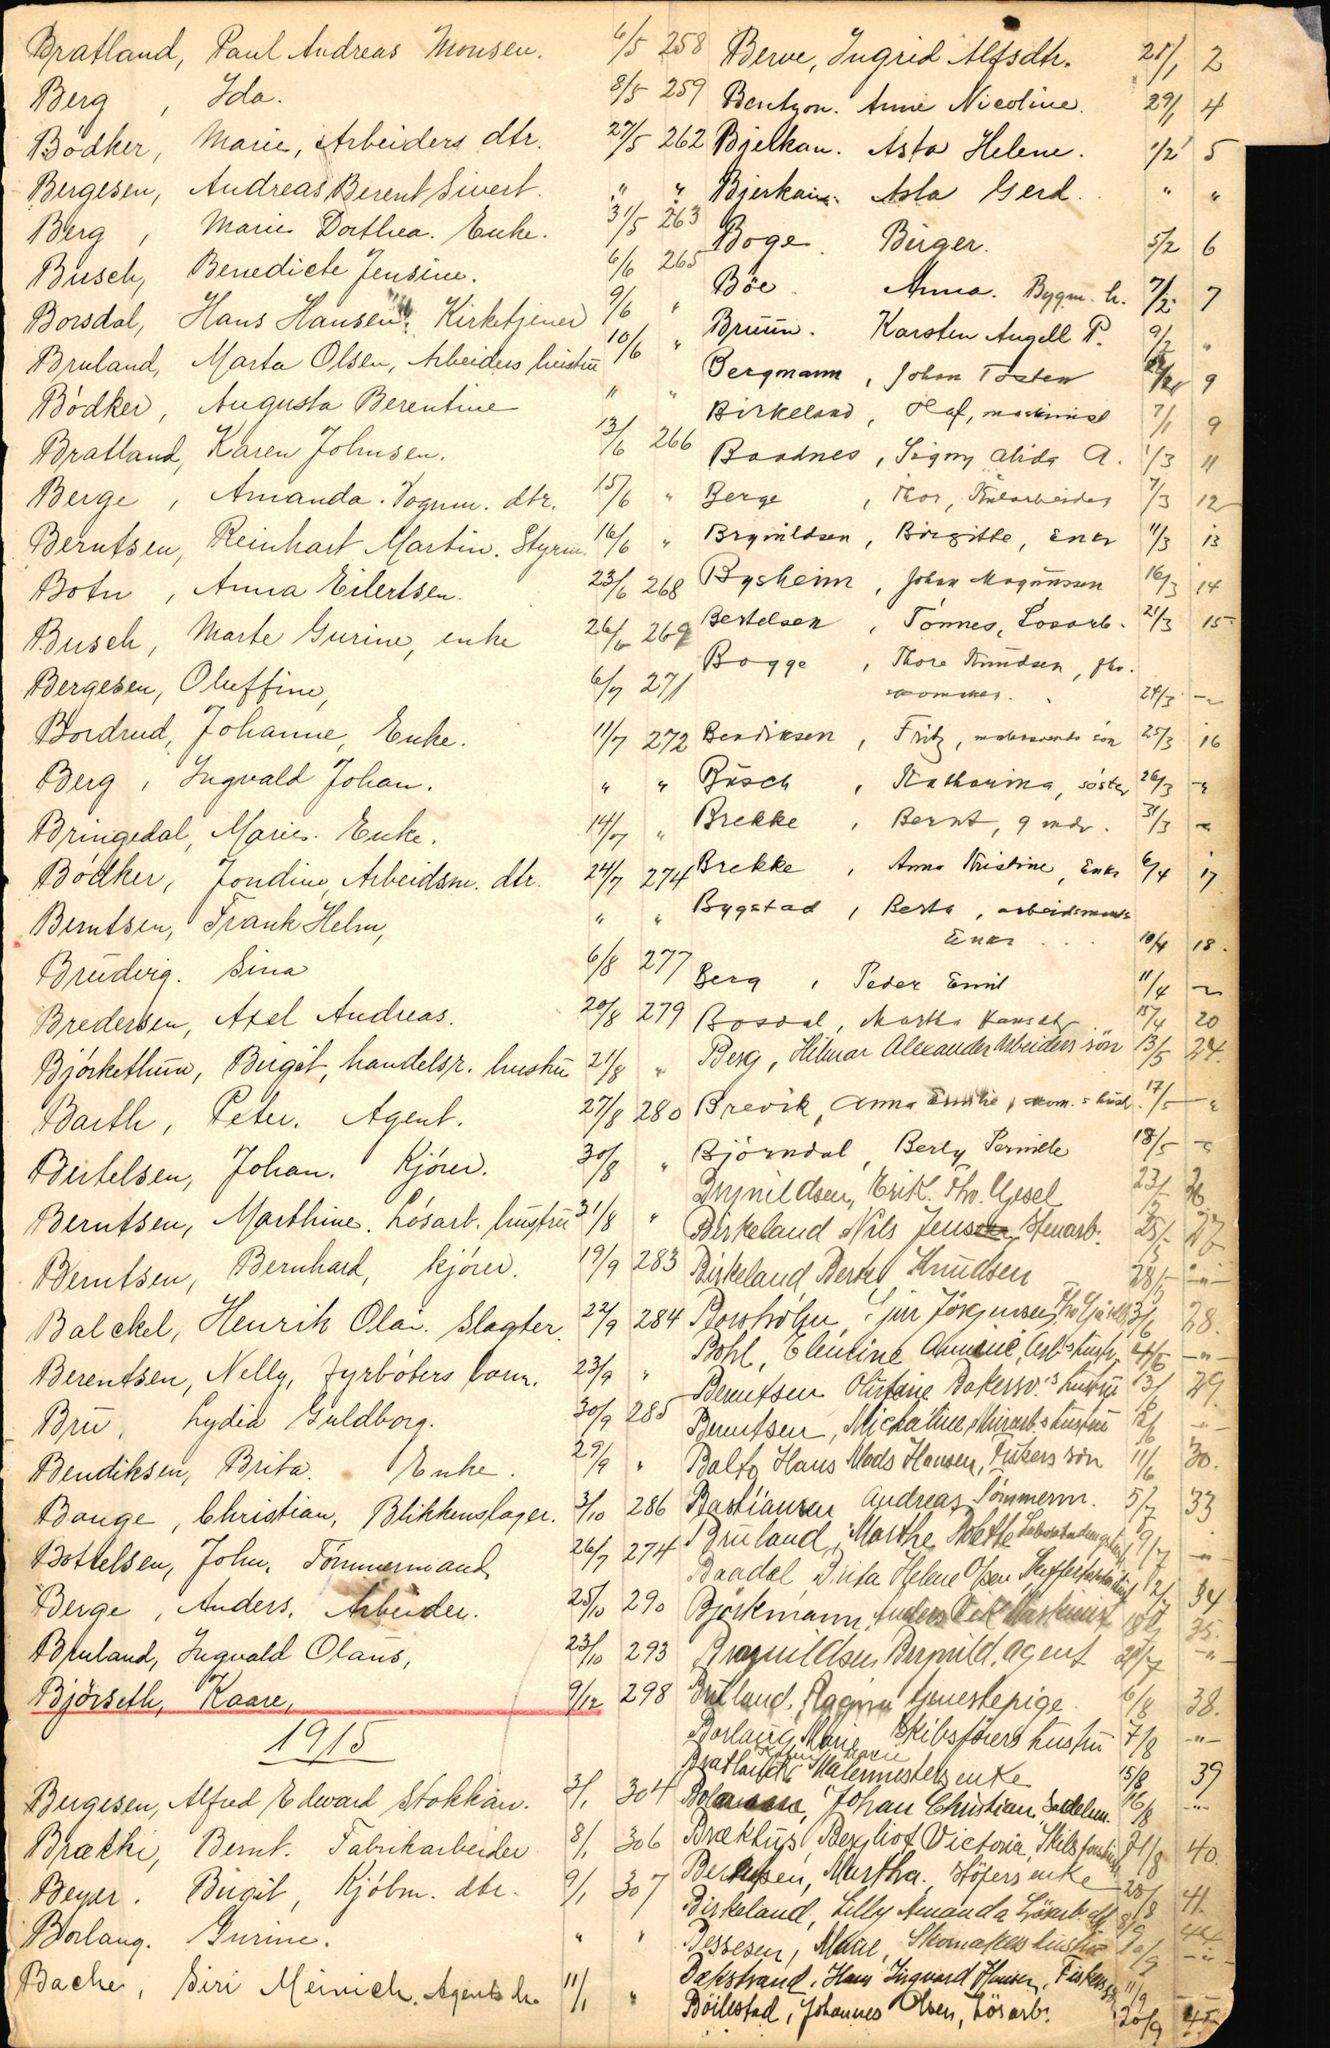 Bratland, Paul Andreas Monsen. 6/5 258
Berg, Ida. 8/5 259
Bödker, Marie, Arbeiders dtr. 27/5 262
Bergesen, Andreas Berent Sivert. " "
Berg, Marie Dorthea. Enke. 31/5 263
Busch, Benedicte Jensine. 6/6 265
Borsdal, Hans Hansen. Kirketjener 9/6 "
Bruland, Marta Olsen, Arbeiders hustru 10/6 "
Bödker, Augusta Berentine " "
Bratland, Karen Johnsen. 13/6 266
Berge, Amanda. Vognm. dtr. 15/6 "
Berntsen, Reinhart Martin. Styrm. 16/6 "
Botn, Anna Eilertsen. 23/6 268
Busch, Marte Gurine, enke 26/6 269
Bergesen, Oluffine, 6/7 271
Bordrud, Johanne, Enke. 11/7 272
Berg, Ingvald Johan. " "
Bringedal, Marie. Enke. 14/7 "
Bödker, Jondine, Arbeidsm. dtr. 24/7 274
Berntsen, Frank Helm, " "
Brudvig. Sina 6/8 277
Bredersen, Axel Andreas. 20/8 279
Björkethun, Birgit, handelsr. hustru 21/8 "
Barth, Peter. Agent. 27/8 280
Bertelsen, Johan. Kjörer. 30/8 "
Berntsen, Marthine. Lösarb. hustru 31/8 "
Berntsen, Bernhard, kjörer. 19/9 283
Balckel, Henrik Olai. Slagter. 22/9 284
Berentsen, Nelly, Fyrböters barn. 23/9 "
Bru, Lydia Guldborg. 30/9 285
Bendiksen, Brita. Enke. 29/9 "
Bauge, Christian, Blikkenslager. 3/10 286
Bottelsen, John, Tömmermand 26/7 274
Berge, Anders. Arbeider. 25/10 290
Bruland, Ingvald Olaus, 23/10 293
Björseth, Kaare, 9/12 298
1915
Bergesen, Alfred Edward Stokkan. 3/1 304
Brathi, Bernt. Fabrikarbeider 8/1 306
Beyer. Birgit, Kjöbm. dtr. 9/1 307
Borlaug. Gurine. " "
Bache, Siri Meinich. Agents h. 11/1 "
Berve, Ingrid Alfsdtr. 28/1 2
Bentzon. Anne Nicoline. 29/1 4
Bjelkan. Asta Helene. 1/2 5
Bjerkan. Asta Gerd. " "
Boge Birger. 5/2 6
Böe. Anna. Bygm. h. 7/2 7
Bruun. Karsten Angell P. 9/2 "
Bergmann, Johan Tosten 9
Birkeland, Olaf, maskinist 7/1 9
Baadnes, Signy Alida A. 1/3 11
Berge, Thor, 7/3 12
Brynildsen, Birgitte, Enke 11/3 13
Bysheim, Johan Magnussen 16/3 14
Bertelsen, Tönnes, Lösarb. 21/3 15
Bogge, Thore Knudsen, fhv.
24/3 -"-
Bendiksen, Fritz, sön 25/3 16
Busch, Katharina, söster 26/3 -"-
Brekke, Bernt, 9 mdr. 31/3 -"-
Brekke, Anna Kristine, Enke 6/4 17
Bygstad, Berta, arbeidsmands
Enke 10/4 18.
Berg, Peder Emil 11/4 -"-
Bosdal, Martha Hansdtr 15/4 20
Berg, Hilmar Alexander Arbeiders sön 13/5 24.
Brevik, Anna Emilie, hust. 17/5 -"-
Björndal, Berly Pernille 18/5 -"-
Brynildsen, Erik. Fhv. 23/5 26
Birkeland Nils Jensen Stenarb. 25/5 27
Birkeland Berte Knudsen 28/5 -"-
Bornholm, Jörgensen, 3/6 28.
Bohl, Elentine Amalie, Arb.s hustr. 4/6 -"-
Berentsen Olufine Bakersv.s hustru 13/6 29.
Berntsen, Michaline, Murarb.s hustru -"-
Balto, Hans Mads Hansen, Fiskers sön 11/6 30.
Bastiansen Andreas Tömmerm. 5/7 33
Bruland, Marthe 9/7 -"-
Baadal, Brita Helene Olsen, 34
Björkmann, Anders Maskinist 35.
Brynildsen Brynild, agent 20/7 -"-
Bruland, Ragna tjenestepige 6/8 38.
Borlaug, Marie Skibsförers hustru 7/8 -"-
Bratland, Marie Malermesters enke 15/8 39
Johan Christian Sadelm. 16/8 -"-
Brækhus, Bergliot Victoria, 21/8 40.
Berntsen, Martha. enke 28/8 41.
Birkeland, Lilly Amanda Lösarb. d. 8/9 44
Bessesen, Marie, Skomakers hustru 10/9 -"-
Bakstrand, Hans Ingvard Hansen, Fiskers s. 11/9 -"-
Böilestad, Johannes Olsen, Lösarb. 20/9 45